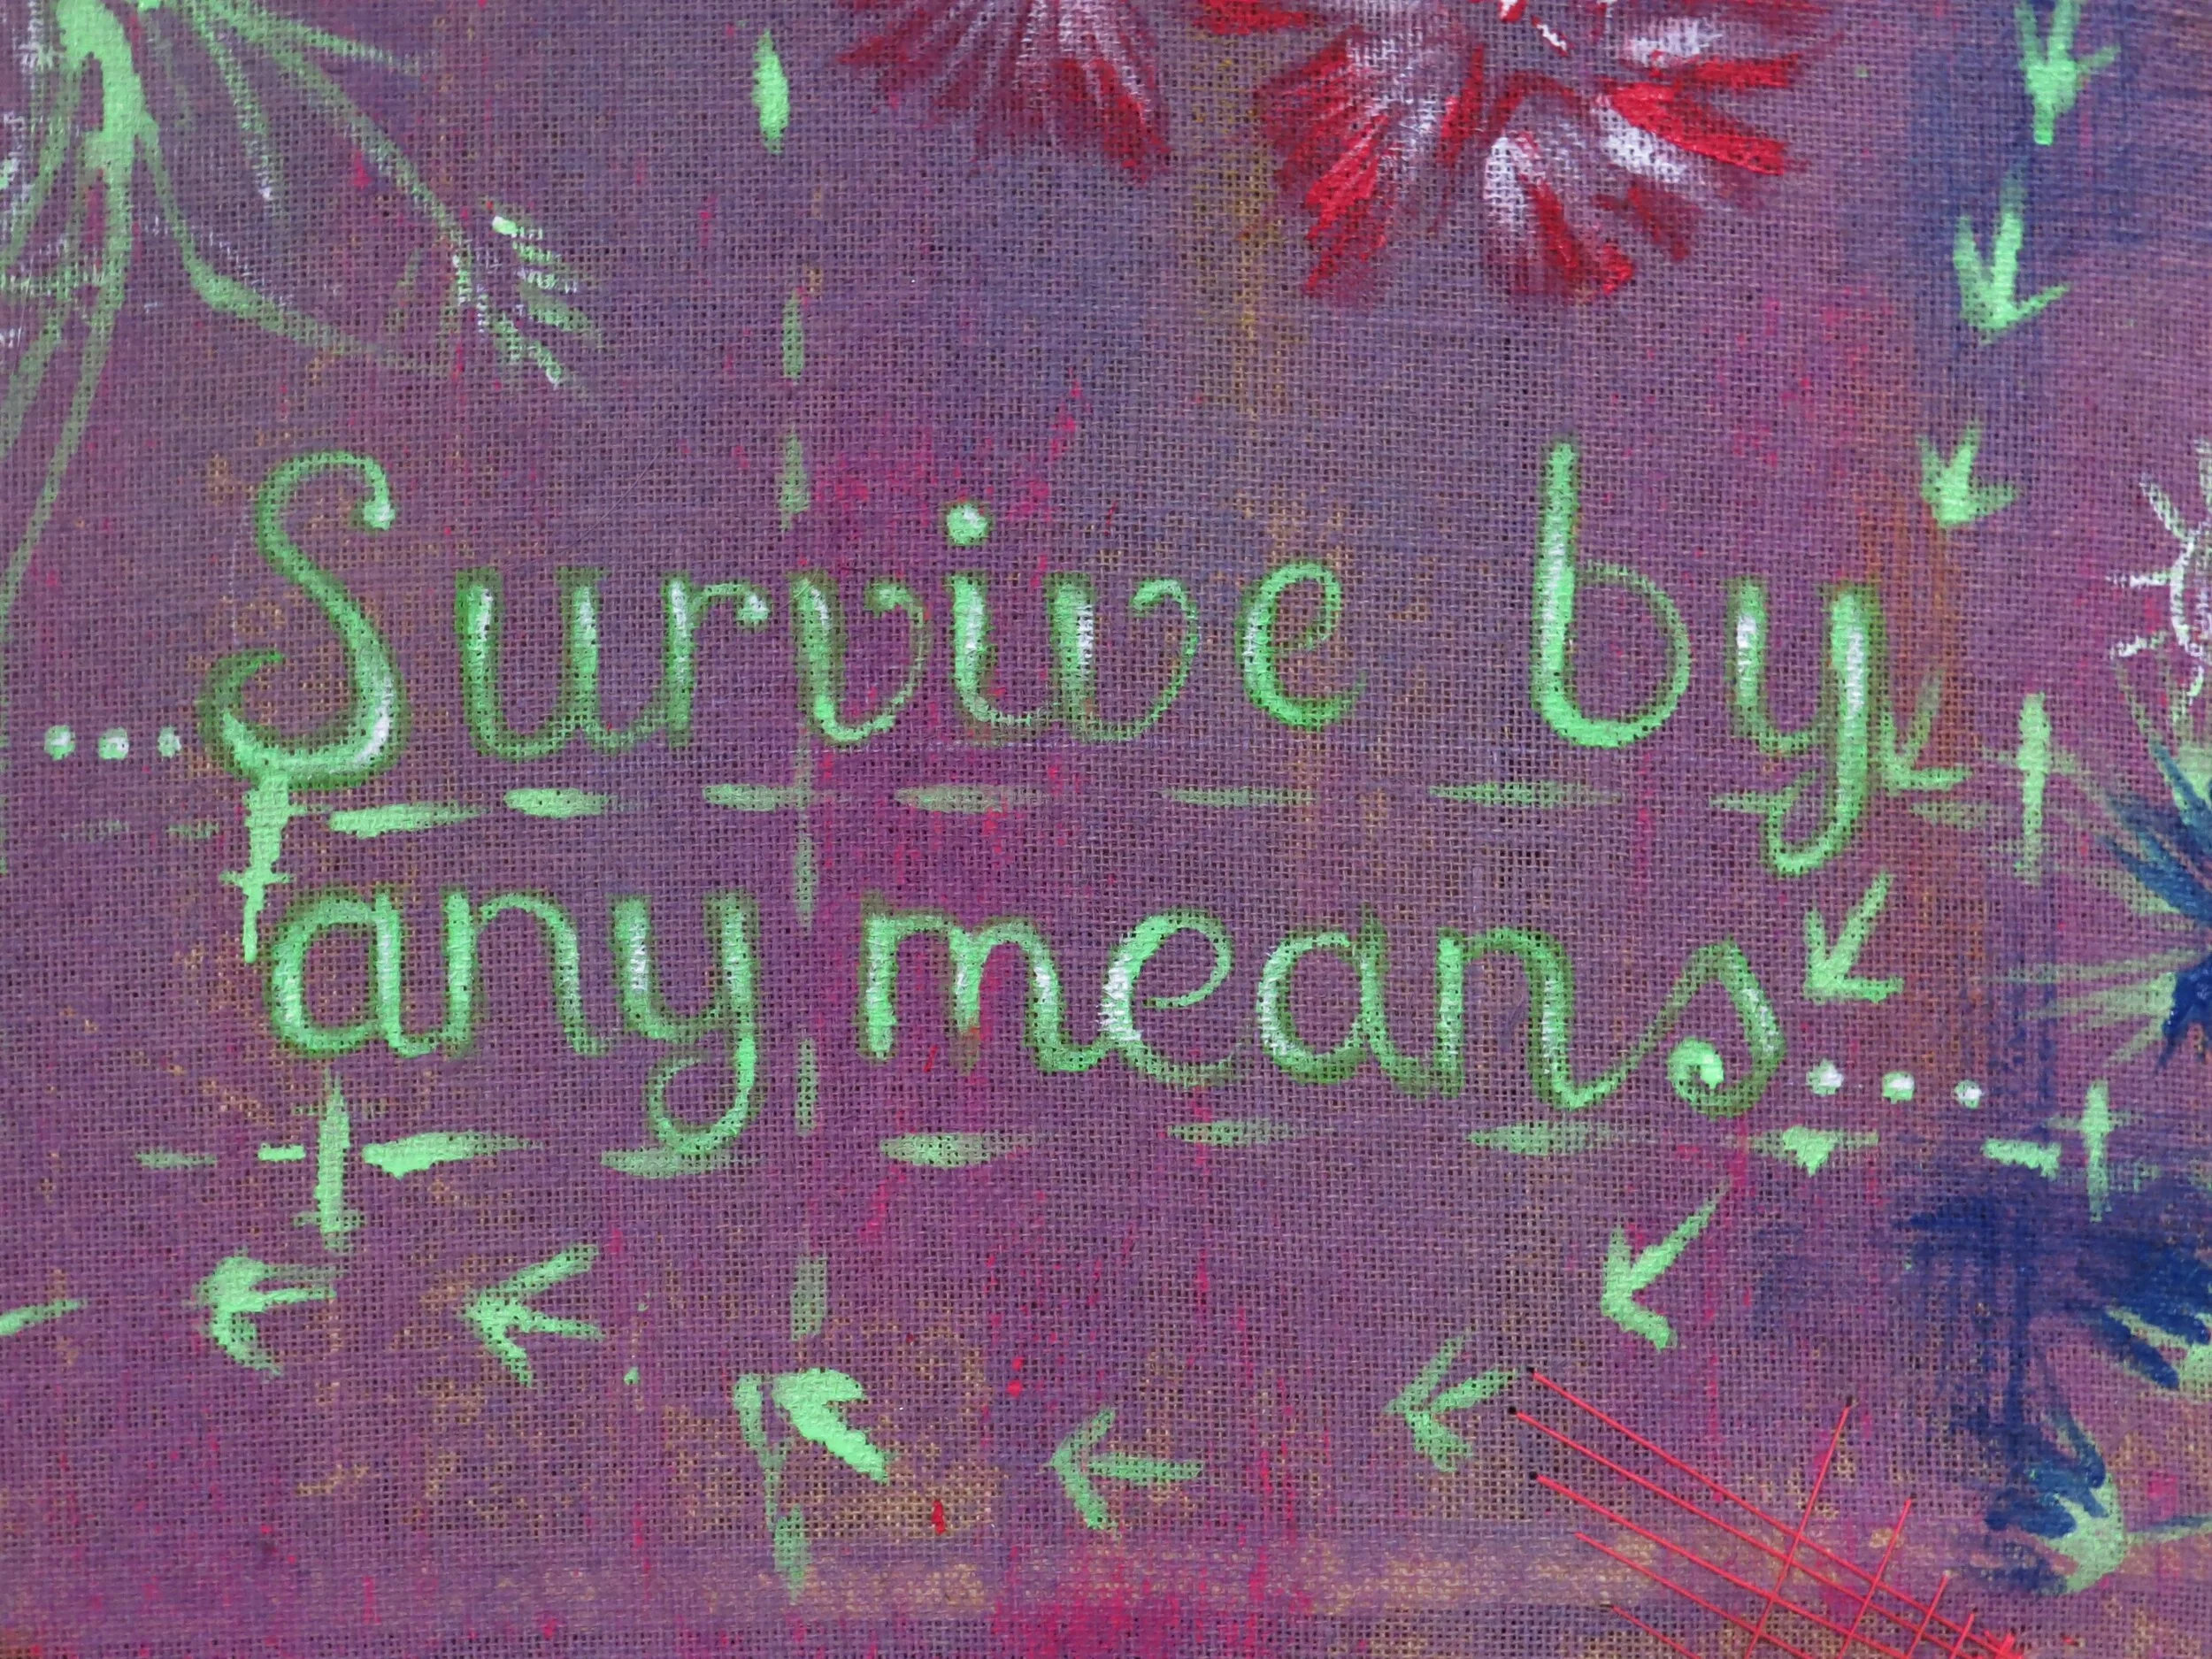 ...Survive by
any means...